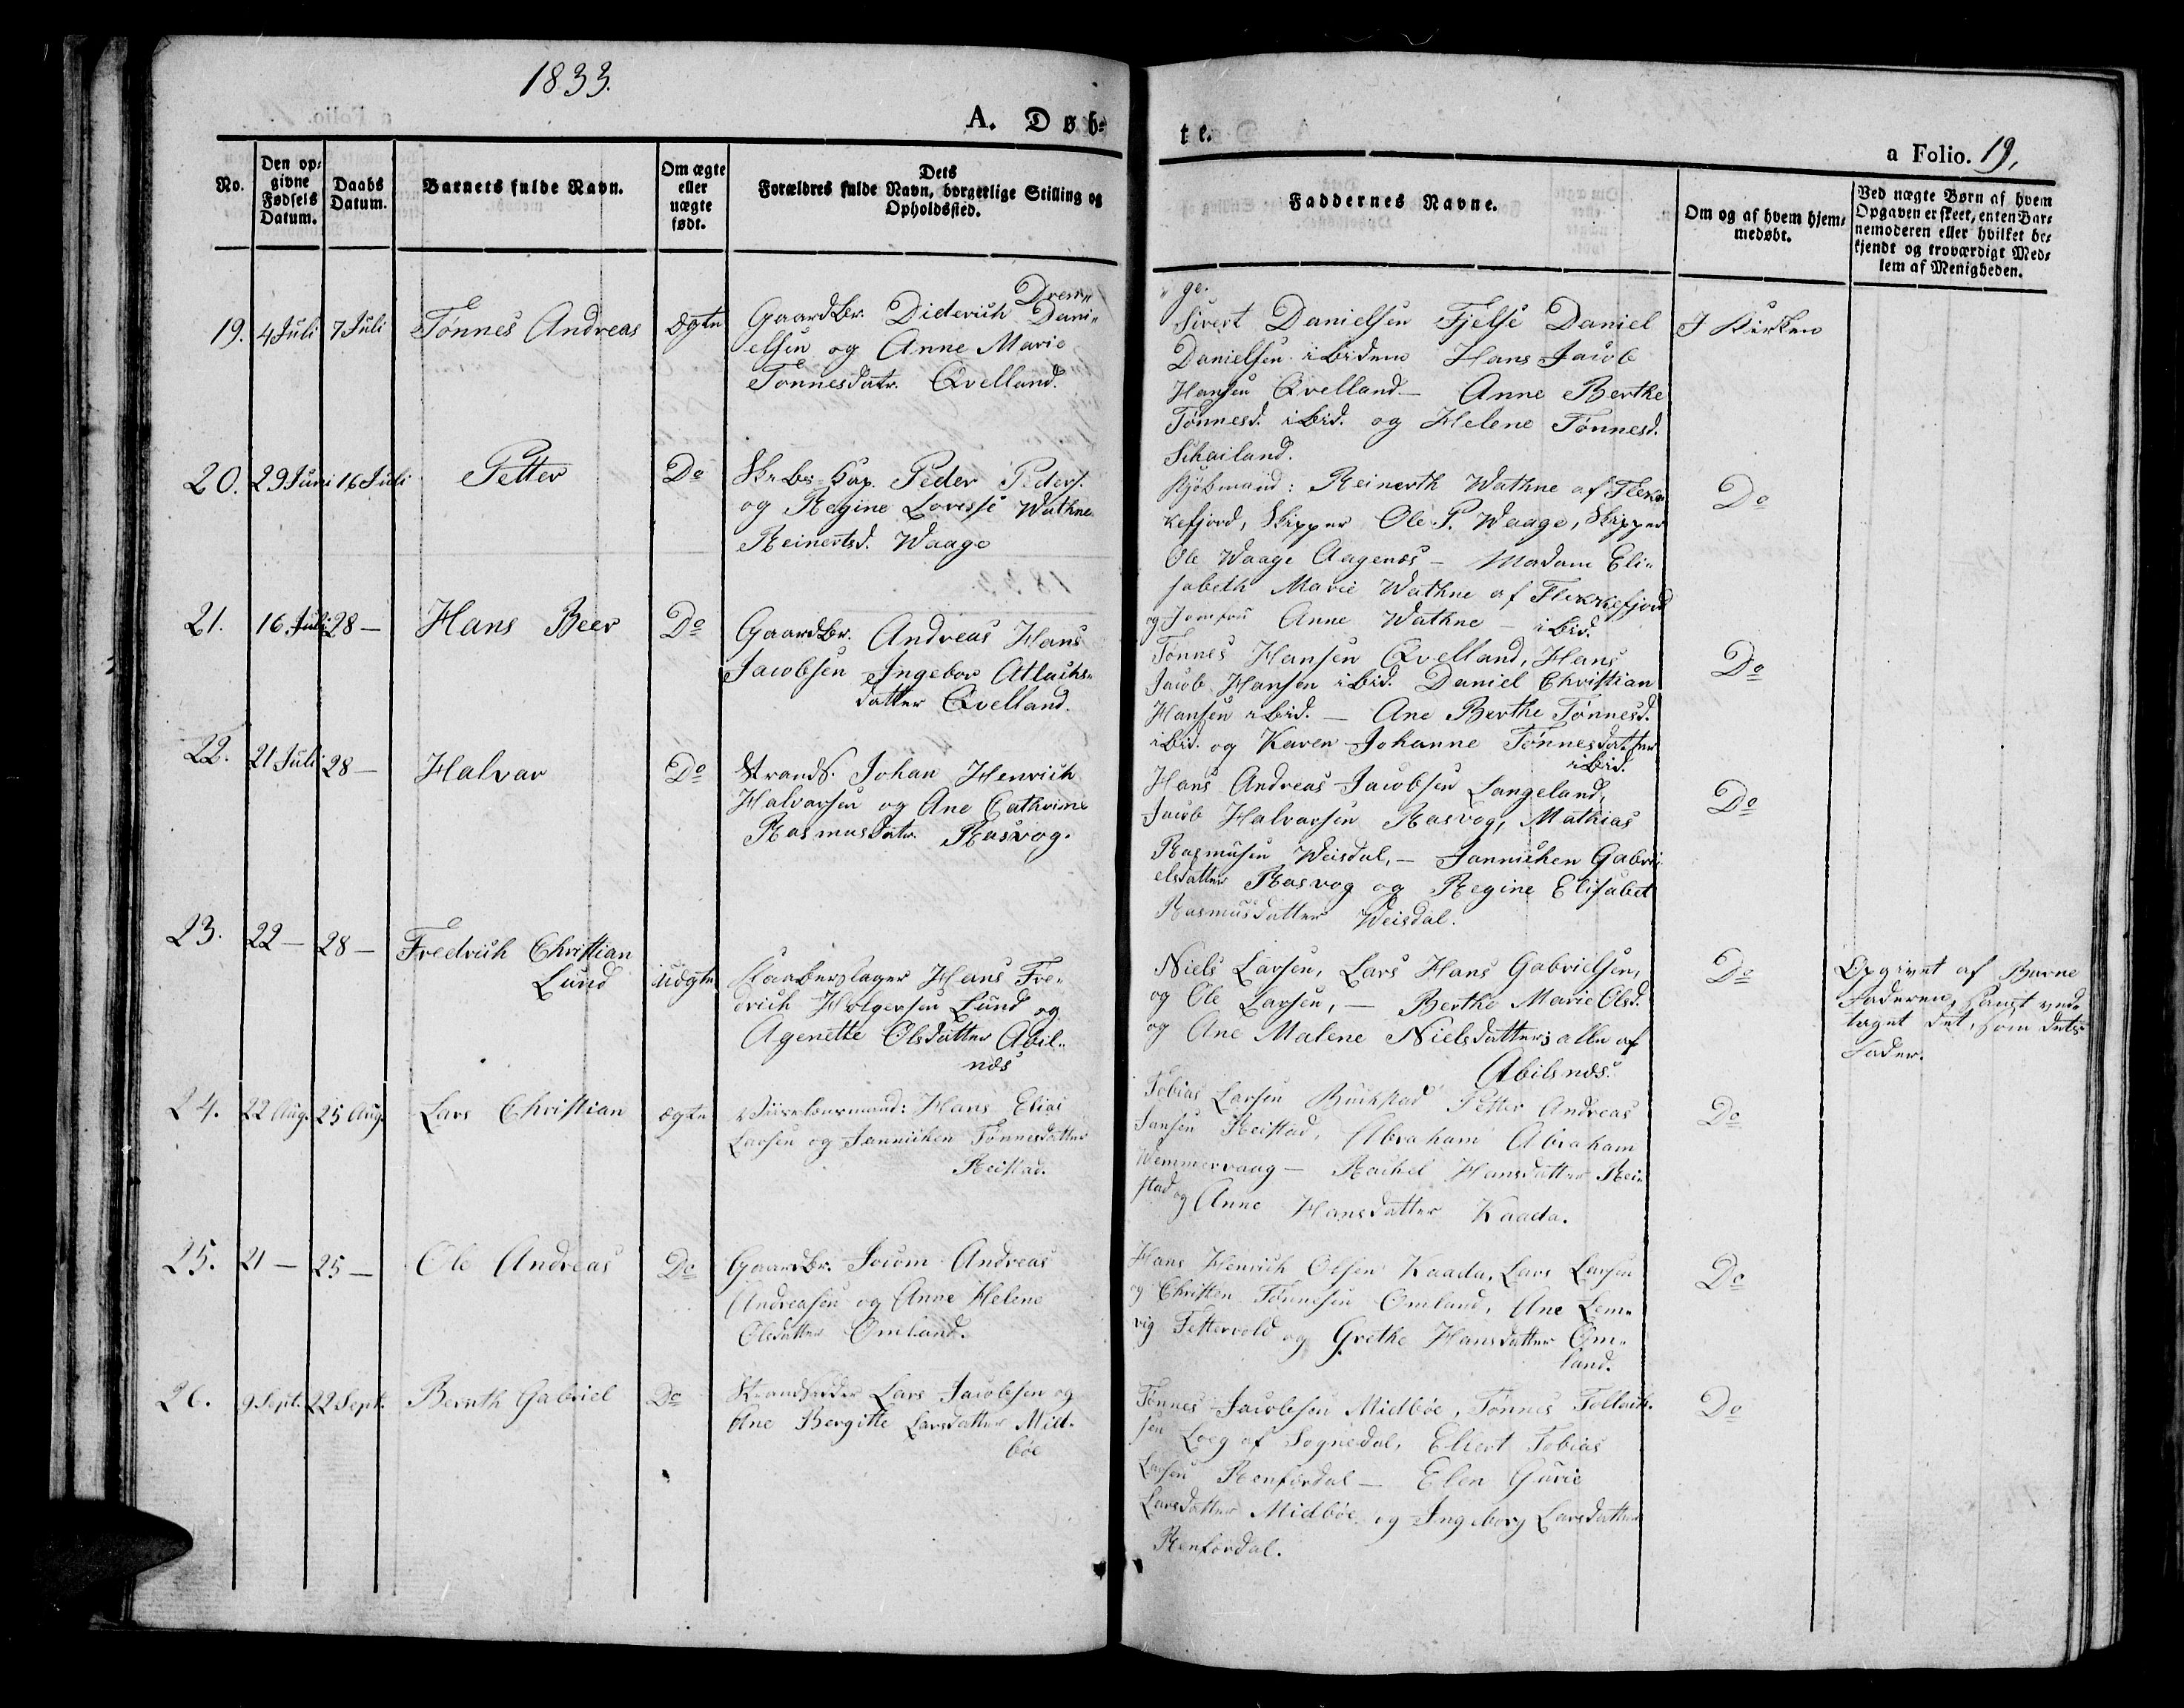 1833.
A. Døb-
te.
a Folio. 19,
No.
Den op-
givne
Fødsels
Datum.
Daabs
Datum.
Barnets fulde Navn.
Om ægte
eller
uægte
født.
Dets
Forældres fulde Navn, borgerlige Stilling og
Opholdssted.
Faddernes Navne.
Om og af hvem hjem-
medøbt.
Ved uægte Børn af hvem
Opgaven er skeet, enten Bar-
nemoderen eller hvilket be-
kjendt og troværdigt Med-
lem af Menigheden.
19. 4 Juli 7 Juli Tønnes Andreas ægte
Dreng
Gaardbr. Diderich Dani-
elsen og Anne Marie
Tønnesdatr. Qvelland.
Sivert Danielsen Fjelse Daniel
Danielsen ibidem Hans Jacob
Hansen Qvelland — Anne Berthe
Tønnesd. ibid. og Helene Tønnesd.
Schailand.
I Kirken
20. 29 Juni 16 Juli Petter Do
Skbs-Cap. Peder Peders.
og Regine Lovisse Wathne
Reinertsd. Waage
Kjøbmand: Reinerth Wathne af Flek-
kefjord, Skipper Ole P. Waage, Skipper
Ole Waage Aagenæs — Madam Eli-
sabeth Marie Wathne af Flekkefjord
og Jomfru Anne Wathne — ibid.
Do
21. 16 Juli 28 — Hans Beer Do
Gaardbr. Andreas Hans
Jacobsen Ingebor Atlachs-
datter Qvelland.
Tønnes Hansen Qvelland, Hans
Jacob Hansen ibid. Daniel Christian
Hansen ibid. — Ane Berthe Tønnesd.
ibid. og Karen Johanne Tønnesdatter
ibid.
Do
22. 21 Juli 28 — Halvar Do
Strands. Johan Henrich
Halvarsen og Ane Cathrine
Rasmusdatr. Rasvog.
Hans Andreas Jacobsen Langeland,
Jacob Halvarsen Rasvog, Mathias
Rasmusen Weisdal, — Jannichen Gabri-
elsdatter Rasvog og Regine Elisabet
Rasmusdatter Weisdal.
Do
23. 22 — 28 — Fredrich Christian
Lund
uægte
Kaaberslager Hans Fre-
drich Holgersen Lund og
Agenette Olsdatter Abil-
næs
Niels Larsen, Lars Hans Gabrielsen,
og Ole Larsen, — Berthe Marie Olsd.
og Ane Malene Nielsdatter; alle af
Abilsnæs.
Do
Opgivet af Barne
Faderen, samt ved-
taget det, som dets
Fader.
24. 22 Aug. 25 Aug. Lars Christian ægte
Hans Elias
Larsen og Jannichen Tønnesdatter
Reistad.
Tobias Larsen Buchstad Petter Andreas
Jansen Reistad, Abraham Abraham
Wemmervaag — Rachel Hansdatter Rei-
stad og Anne Hansdatter Kaada.
Do
25. 21 — 25 — Ole Andreas Do
Gaardbr. Jocom Andreas
Andreasen og Anne Helene
Olsdatter Omland.
Hans Henrich Olsen Kaada, Lars Larsen
og Christen Tønnesen Omland, Ane Lem-
vig Tettervold og Grethe Hansdatter Om-
land.
Do
26. 9 Sept. 22 Sept. Bernth Gabriel Do
Strandsidder Lars Jacobsen og
Ane Bergitte Larsdatter Mid-
bøe
Tønnes Jacobsen Midbøe, Tønnes Tollach-
sen Loeg af Sognedal, Eliert Tobias
Larsen Renfordal — Elen Gurie
Larsdatter Midbøe og Ingeborg Larsdatter
Renfordal.
Do